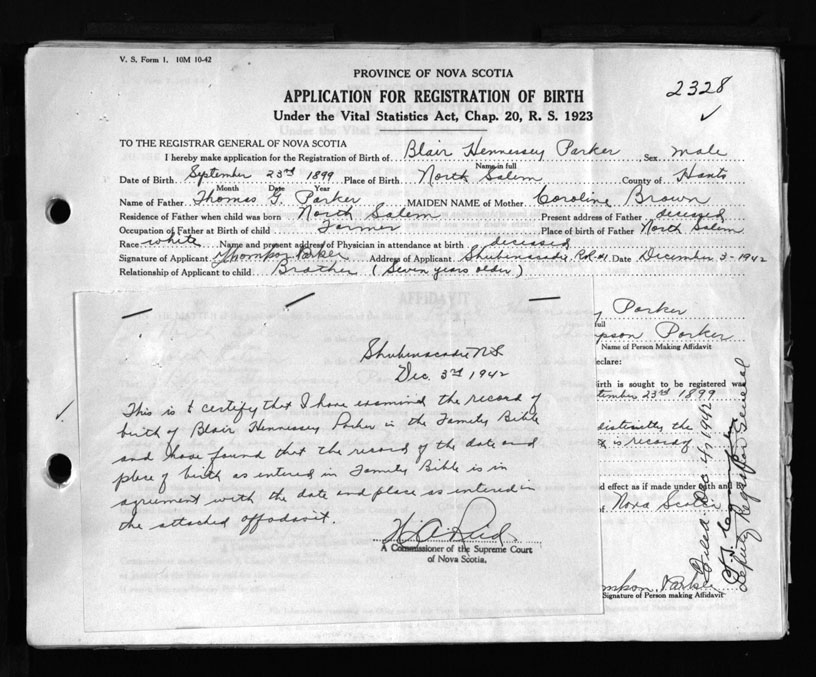 V. S. Form 1. 10M 10-42
2328
PROVINCE OF NOVA SCOTIA
APPLICATION FOR REGISTRATION OF BIRTH
Under the Vital Statistics Act, Chap. 20, R. S. 1923
TO THE REGISTRAR GENERAL OF NOVA SCOTIA
I hereby make application for the Registration of Birth of Blair Hennessey Parker Sex male
Name in full
Date of Birth September 23rd 1899 Place of Birth North Salem County of Hants
Month Date Year
Name of Father Thomas G. Parker MAIDEN NAME of Mother Caroline Brown
Residence of Father when child was born North Salem Present address of Father deceased
Occupation of Father at Birth of child Farmer Place of birth of Father North Salem
Race white Name and present address of Physician in attendance at birth deceased
Signature of Applicant Thompson Parker Address of Applicant Shubenacadie, R.R.#1. Date December 3-1942
Relationship of Applicant to child Brother (Seven years older)
AFFIDAVIT
Shubenacadie N.S.
Dec. 3rd 1942
This is to certify that I have examined the record of
birth of Blair Hennessey Parker in the Family Bible
and have found that the record of the date and
place of birth as entered in Family Bible is in
agreement with the date and place as entered in
the attached affadavit.
H.A. Reid.
A Commissioner of the Supreme Court
of Nova Scotia.
Parker
full
mpson Parker
Name of Person Making Affidavit
declare:
Birth is sought to be registered was
tember 23rd 1899
distinctly the
is record of
d effect as if made under oath and By
of Nova Scotia
mpson Parker
Signature of Person making Affidavit
Dec 4, 1942
Deputy Registrar General